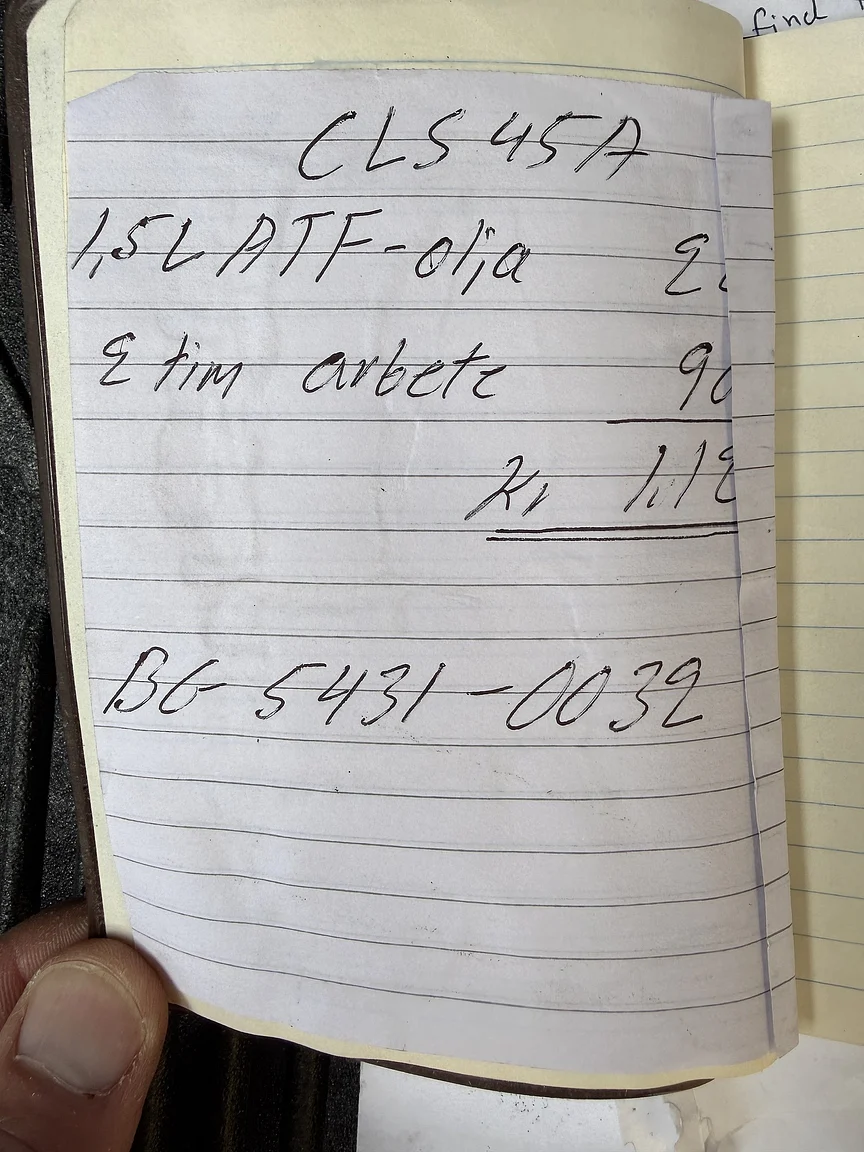 find
CLS 45A
1,5L ATF-olja
2 tim arbete 90
Kr 1.12
BG 5431-0032